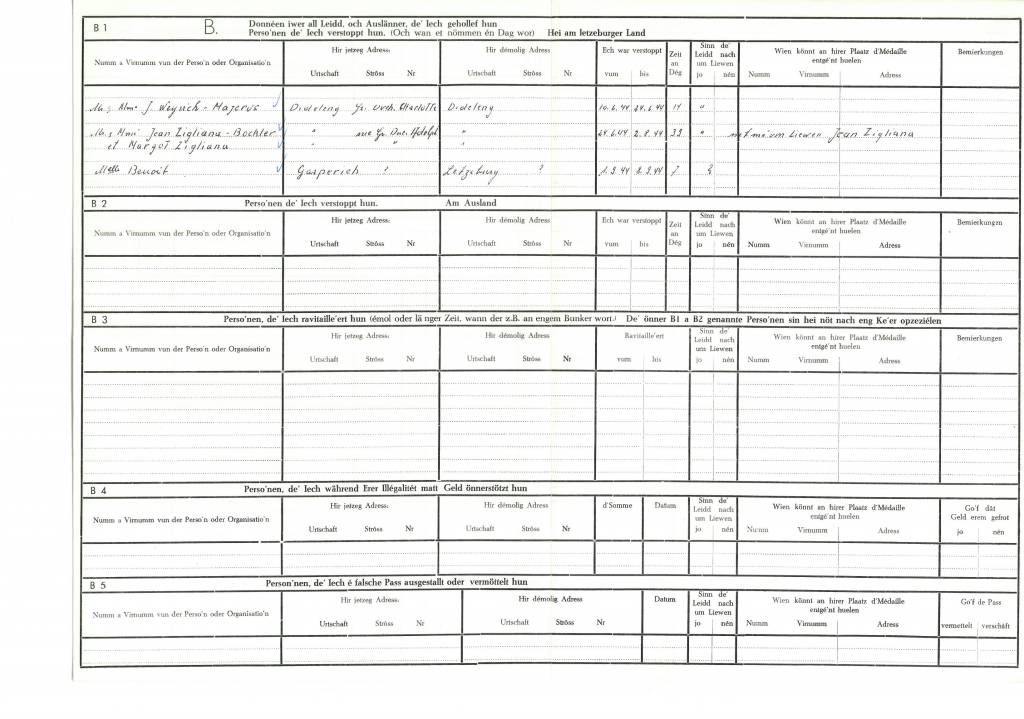 B 1 B. Donnéen iwer all Leidd, och Auslänner, de' Iech gehollef hun
Perso'nen de' Iech verstoppt hun. (Och wan et nömmen én Dag wor) Hei am letzeburger Land
Numm a Virnumm vun der Perso'n oder Organisatio'n
Hir jetzeg Adress: Urtschaft Ströss Nr
Hir démolig Adress Urtschaft Ströss Nr
Ech war verstoppt vum bis
Zeit an Dég
Sinn de' Leidd nach um Liewen jo nén
Wien könnt an hirer Plaatz d'Médaille entgé'nt huelen Numm Virnumm Adress
Bemierkungen
J. Weynch - Majerus Dideleng Gr. Charlotte Dideleng 10.6.44 24.6.44 14 "
Jean Zigliana - Bochler " rue Gr. Duc Adolph " 24.6.44 2.8.44 39 " Liewen Jean Zigliana
et Margot Zigliana " " "
Melle Benoit Gasperich ? Letzeburg ? 2.9.44 7 ?
B 2 Perso'nen de' Iech verstoppt hun. Am Ausland
Numm a Virnumm vun der Perso'n oder Organisatio'n
Hir jetzeg Adress: Urtschaft Ströss Nr
Hir démolig Adress Urtschaft Ströss Nr
Ech war verstoppt vum bis
Zeit an Dég
Sinn de' Leidd nach um Liewen jo nén
Wien könnt an hirer Plaatz d'Médaille entgé'nt huelen Numm Virnumm Adress
Bemierkungen
B 3 Perso'nen, de' Iech ravitaille'ert hun (émol oder länger Zeit, wann der z.B. an engem Bunker wort.) De' önner B1 a B2 genannte Perso'nen sin hei nöt nach eng Ke'er opzeziélen
Numm a Virnumm vun der Perso'n oder Organisatio'n
Hir jetzeg Adress: Urtschaft Ströss Nr
Hir démolig Adress Urtschaft Ströss Nr
Ravitaille'ert vum bis
Sinn de' Leidd nach um Liewen jo nén
Wien könnt an hirer Plaatz d'Médaille entgé'nt huelen Numm Virnumm Adress
Bemierkungen
B 4 Perso'nen, de' Iech während Erer Illégalitét matt Geld önnerstötzt hun
Numm a Virnumm vun der Perso'n oder Organisatio'n
Hir jetzeg Adress: Urtschaft Ströss Nr
Hir démolig Adress Urtschaft Ströss Nr
d'Somme
Datum
Sinn de' Leidd nach um Liewen jo nén
Wien könnt an hirer Plaatz d'Médaille entgé'nt huelen Numm Virnumm Adress
Go'f dât Geld erem gefrot jo nén
B 5 Person'nen, de' Iech é falsche Pass ausgestallt oder vermöttelt hun
Numm a Virnumm vun der Perso'n oder Organisatio'n
Hir jetzeg Adress: Urtschaft Ströss Nr
Hir démolig Adress Urtschaft Ströss Nr
Datum
Sinn de' Leidd nach um Liewen jo nén
Wien könnt an hirer Plaatz d'Médaille entgé'nt huelen Numm Virnumm Adress
Go'f de Pass vermettelt verschâft